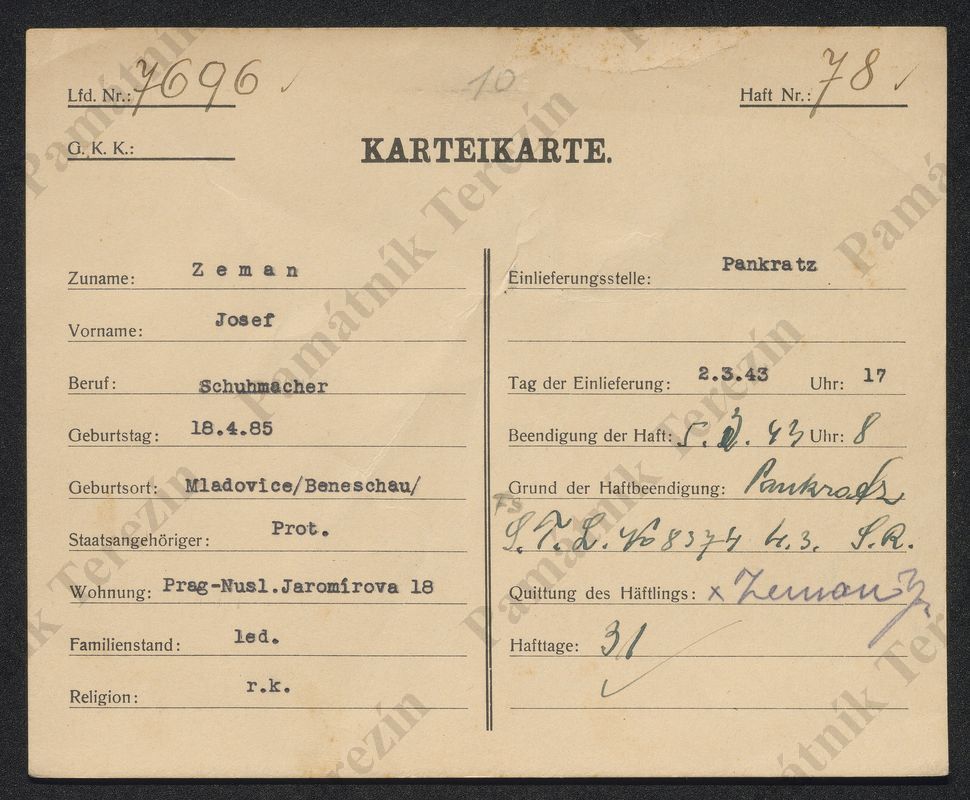 Lfd. Nr.: 7696
10
Haft Nr.: 78
G. K. K.:
KARTEIKARTE.
Zuname: Zeman
Vorname: Josef
Beruf: Schuhmacher
Geburtstag: 18.4.85
Geburtsort: Mladovice/Beneschau/
Staatsangehöriger: Prot.
Wohnung: Prag-Nusl.Jaromírova 18
Familienstand: led.
Religion: r.k.
Einlieferungsstelle: Pankratz
Tag der Einlieferung: 2.3.43 Uhr: 17
Beendigung der Haft: 5. 3. 43 Uhr: 8
Grund der Haftbeendigung: Pankratz
FS
S.T.L. No 8374 4.3. S.R.
Quittung des Häftlings: x Zeman
Hafttage: 31
Památník Terezín